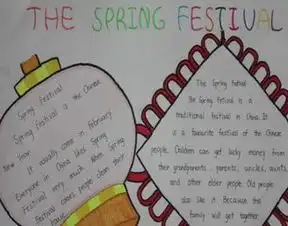 THE SPRING FESTIVAL
Spring Festival
Spring Festival is the Chinese
New Year.
It usually come in february
Everyone in China likes Spring
Festival very much. When Spring
Festival comes people clean their
house
The Spring Festival
the Spring Festival is a
traditional festival in China. It
is a favourite festival of the Chinese
people. Children can get lucky money from
their grandparents, parents, uncles, aunts,
and other elder people. Old people
also like it. Because the
family will get together